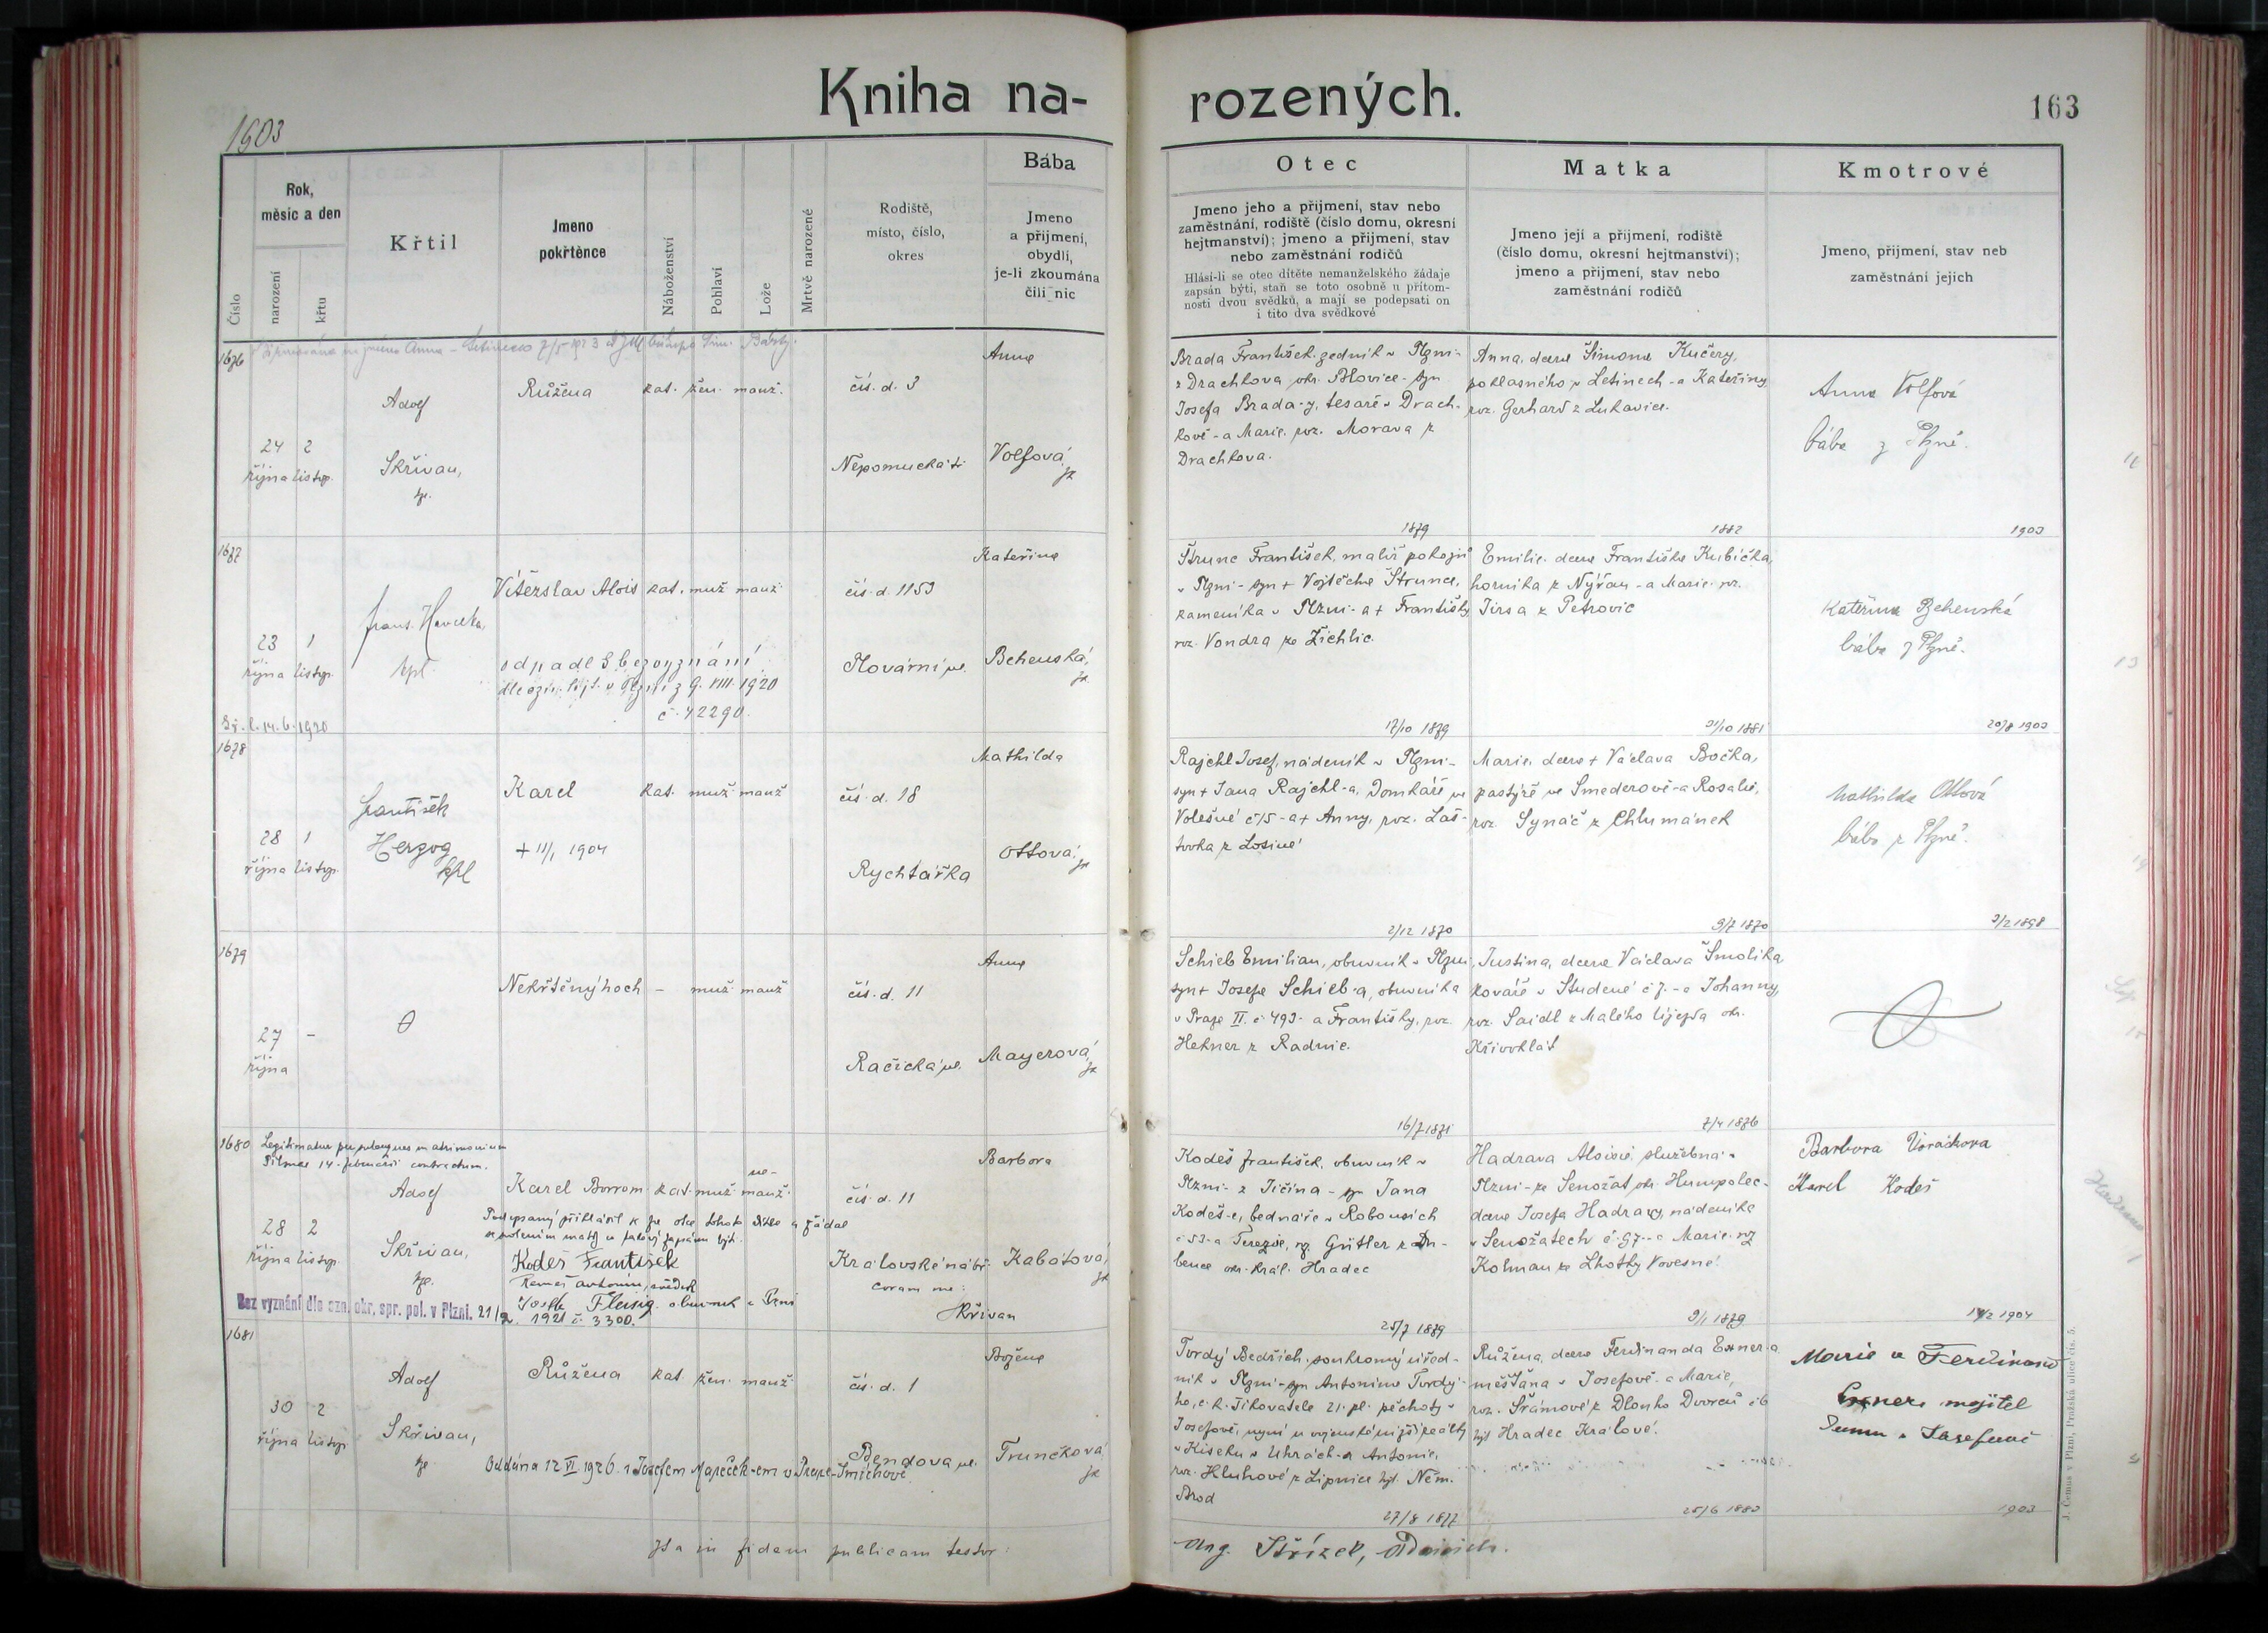 Kniha na-
rozených.
163
1903
Číslo
Rok,
měsíc a den
narození
křtu
Křtil
Jmeno
pokřtěnce
Náboženství
Pohlaví
Lože
Mrtvě narozené
Rodiště,
místo, číslo,
okres
Bába
Jmeno
a přijmení,
obydlí,
je-li zkoumána
čili nic
Otec
Jmeno jeho a přijmení, stav nebo
zaměstnání, rodiště (číslo domu, okresní
hejtmanství); jmeno a přijmení, stav
nebo zaměstnání rodičů
Hlásí-li se otec dítěte nemanželského žádaje
zapsán býti, staň se toto osobně u přítom-
nosti dvou svědků, a mají se podepsati on
i tito dva svědkové
Matka
Jmeno její a přijmení, rodiště
(číslo domu, okresní hejtmanství);
jmeno a přijmení, stav nebo
zaměstnání rodičů
Kmotrové
Jmeno, přijmení, stav neb
zaměstnání jejich
1676
24 října
2 listop.
Adolf
Skřivan,
Růžena kat. žen. manž.
čís. d. 3
Nepomucká tř.
Anna
Volfová
Brada František, zedník v Plzni-
z Drachkova okr. Blovice - syn
Josefa Brada-y, tesaře v Drach-
kově - a Marie, roz. Morava z
Drachkova.
1879
Anna, dcera Šimona Kučery,
poklasného v Letinech - a Kateřiny
roz. Gerhard z Lukavice.
1882
Anna Volfová
bába z Plzně.
1903
1677
23 října
1 listop.
Frant. Havelka,
kpl.
Vítězslav Alois kat. muž manž.
odpadl k bezvyznání
z 9. VIII. 1920
č. 42290.
14. 6. 1920
čís. d. 1153
Plovární ul.
Kateřina
Behenská,
Štrunc František, malíř pokojů
v Plzni - syn + Vojtěcha Štrunce,
kameníka v Plzni - a + Františky
roz. Vondra ze Žichlic.
17/10 1879
Emilie, dcera Františka Kubíčka,
horníka z Nýřan - a Marie, roz.
Jirsa z Petrovic
31/10 1881
Kateřina Behenská
bába z Plzně.
20/8 1903
1678
28 října
1 listop.
František
Herzog
kpl
Karel kat. muž. manž
+ 11/1 1904
čís. d. 18
Rychtářka
Mathilda
Ottová,
Rajchl Josef, nádeník v Plzni-
syn + Jana Rajchl-a, domkáře ve
Volešné č 15 - a + Anny, roz. Laš-
tovka z Losiné
2/12 1870
Marie, dcera + Václava Bočka,
pastýře ve Smederově - a Rosalie,
roz. Synáč z Chlumánek
9/7 1870
Mathilda Ottová
bába z Plzně.
2/2 1898
1679
27 října
-
Nekřtěný hoch - muž. manž
čís. d. 11
Račická ul.
Anna
Mayerová,
Schieb Emilian, obuvník v Plzni,
syn + Josefa Schieb-a, obuvníka
v Praze II. č 493 - a Františky, roz.
Hekner z Radnic.
16/7 1871
Justina, dcera Václava Smolíka
kováře v Studené č 7. - a Johanny,
roz. Saidl z Malého Újezda okr.
Křivoklát
7/4 1876
1680
Legitimatus per subsequens matrimonium
Pilsnae 14. februarii contractum.
28 října
2 listop.
Adolf
Skřivan,
Karel Borrom. kat. muž. ne-
manž.
Podepsaný přihlásil se za otce tohoto dítěte a žádal
Kodeš František
svědek
Josef Fleisig obuvník v Plzni
Bez vyznání dle ozn. okr. spr. pol. v Plzni. 21/2. 1921 č. 3300.
čís. d. 11
Královské nábř.
coram me:
Skřivan
Barbora
Kabátová,
Kodeš František, obuvník v
Plzni - z Jičína - syn Jana
Kodeš-e, bednáře v Robousích
č 53 - a Terezie, roz. Gütler z Du-
bence okr. Král. Hradec
25/7 1879
Hadrava Aloisie, služebná v
Plzni - ze Senožat okr. Humpolec -
dcera Josefa Hadravy, nádeníka
v Senožatech č. 97 - a Marie, roz
Kolman ze Lhotky Vovesné.
9/1 1879
Barbora
Karel Kodeš
14/2 1904
1681
30 října
2 listop.
Adolf
Skřivan,
Růžena kat. žen. manž.
Oddána 12 VI 1926 s Josefem Mareček-em v Praze - Smíchově
čís. d. 1
Bendova ul.
Božena
Trunečková
Tvrdý Bedřich, soukromý úřed-
ník v Plzni - syn Antonína Tvrdý-
ho, c. k. šikovatele 21. pl. pěchoty v
Josefově, nyní u vojenské nižší reálky
v Kiseku v Uhrách - a Antonie,
roz. Hluhové z Lipnice hjt. Něm.
Brod
27/8 1877
Růžena, dcera Ferdinanda Exner-a
měšťana v Josefově - a Marie,
roz. Šrámové z Dlouho Dvorců č 6
hjt Hradec Králové.
25/6 1880
Marie a Ferdinand
Exner, majitel
domu v Josefově
1903
Ita in fidem publicam testor:
Aug. Střízek,
J. Čemus v Plzni, Pražská ulice čís. 5.